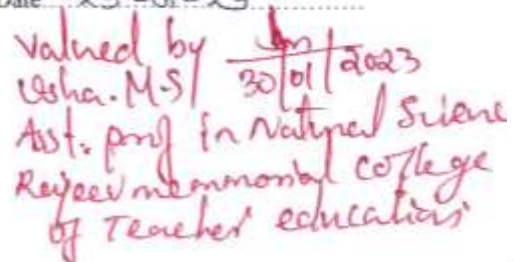 Date
Valued by
Usha.M.S 30/01/2023
Asst. prof in Natural Science
Rajeev memmorial college
of Teacher education